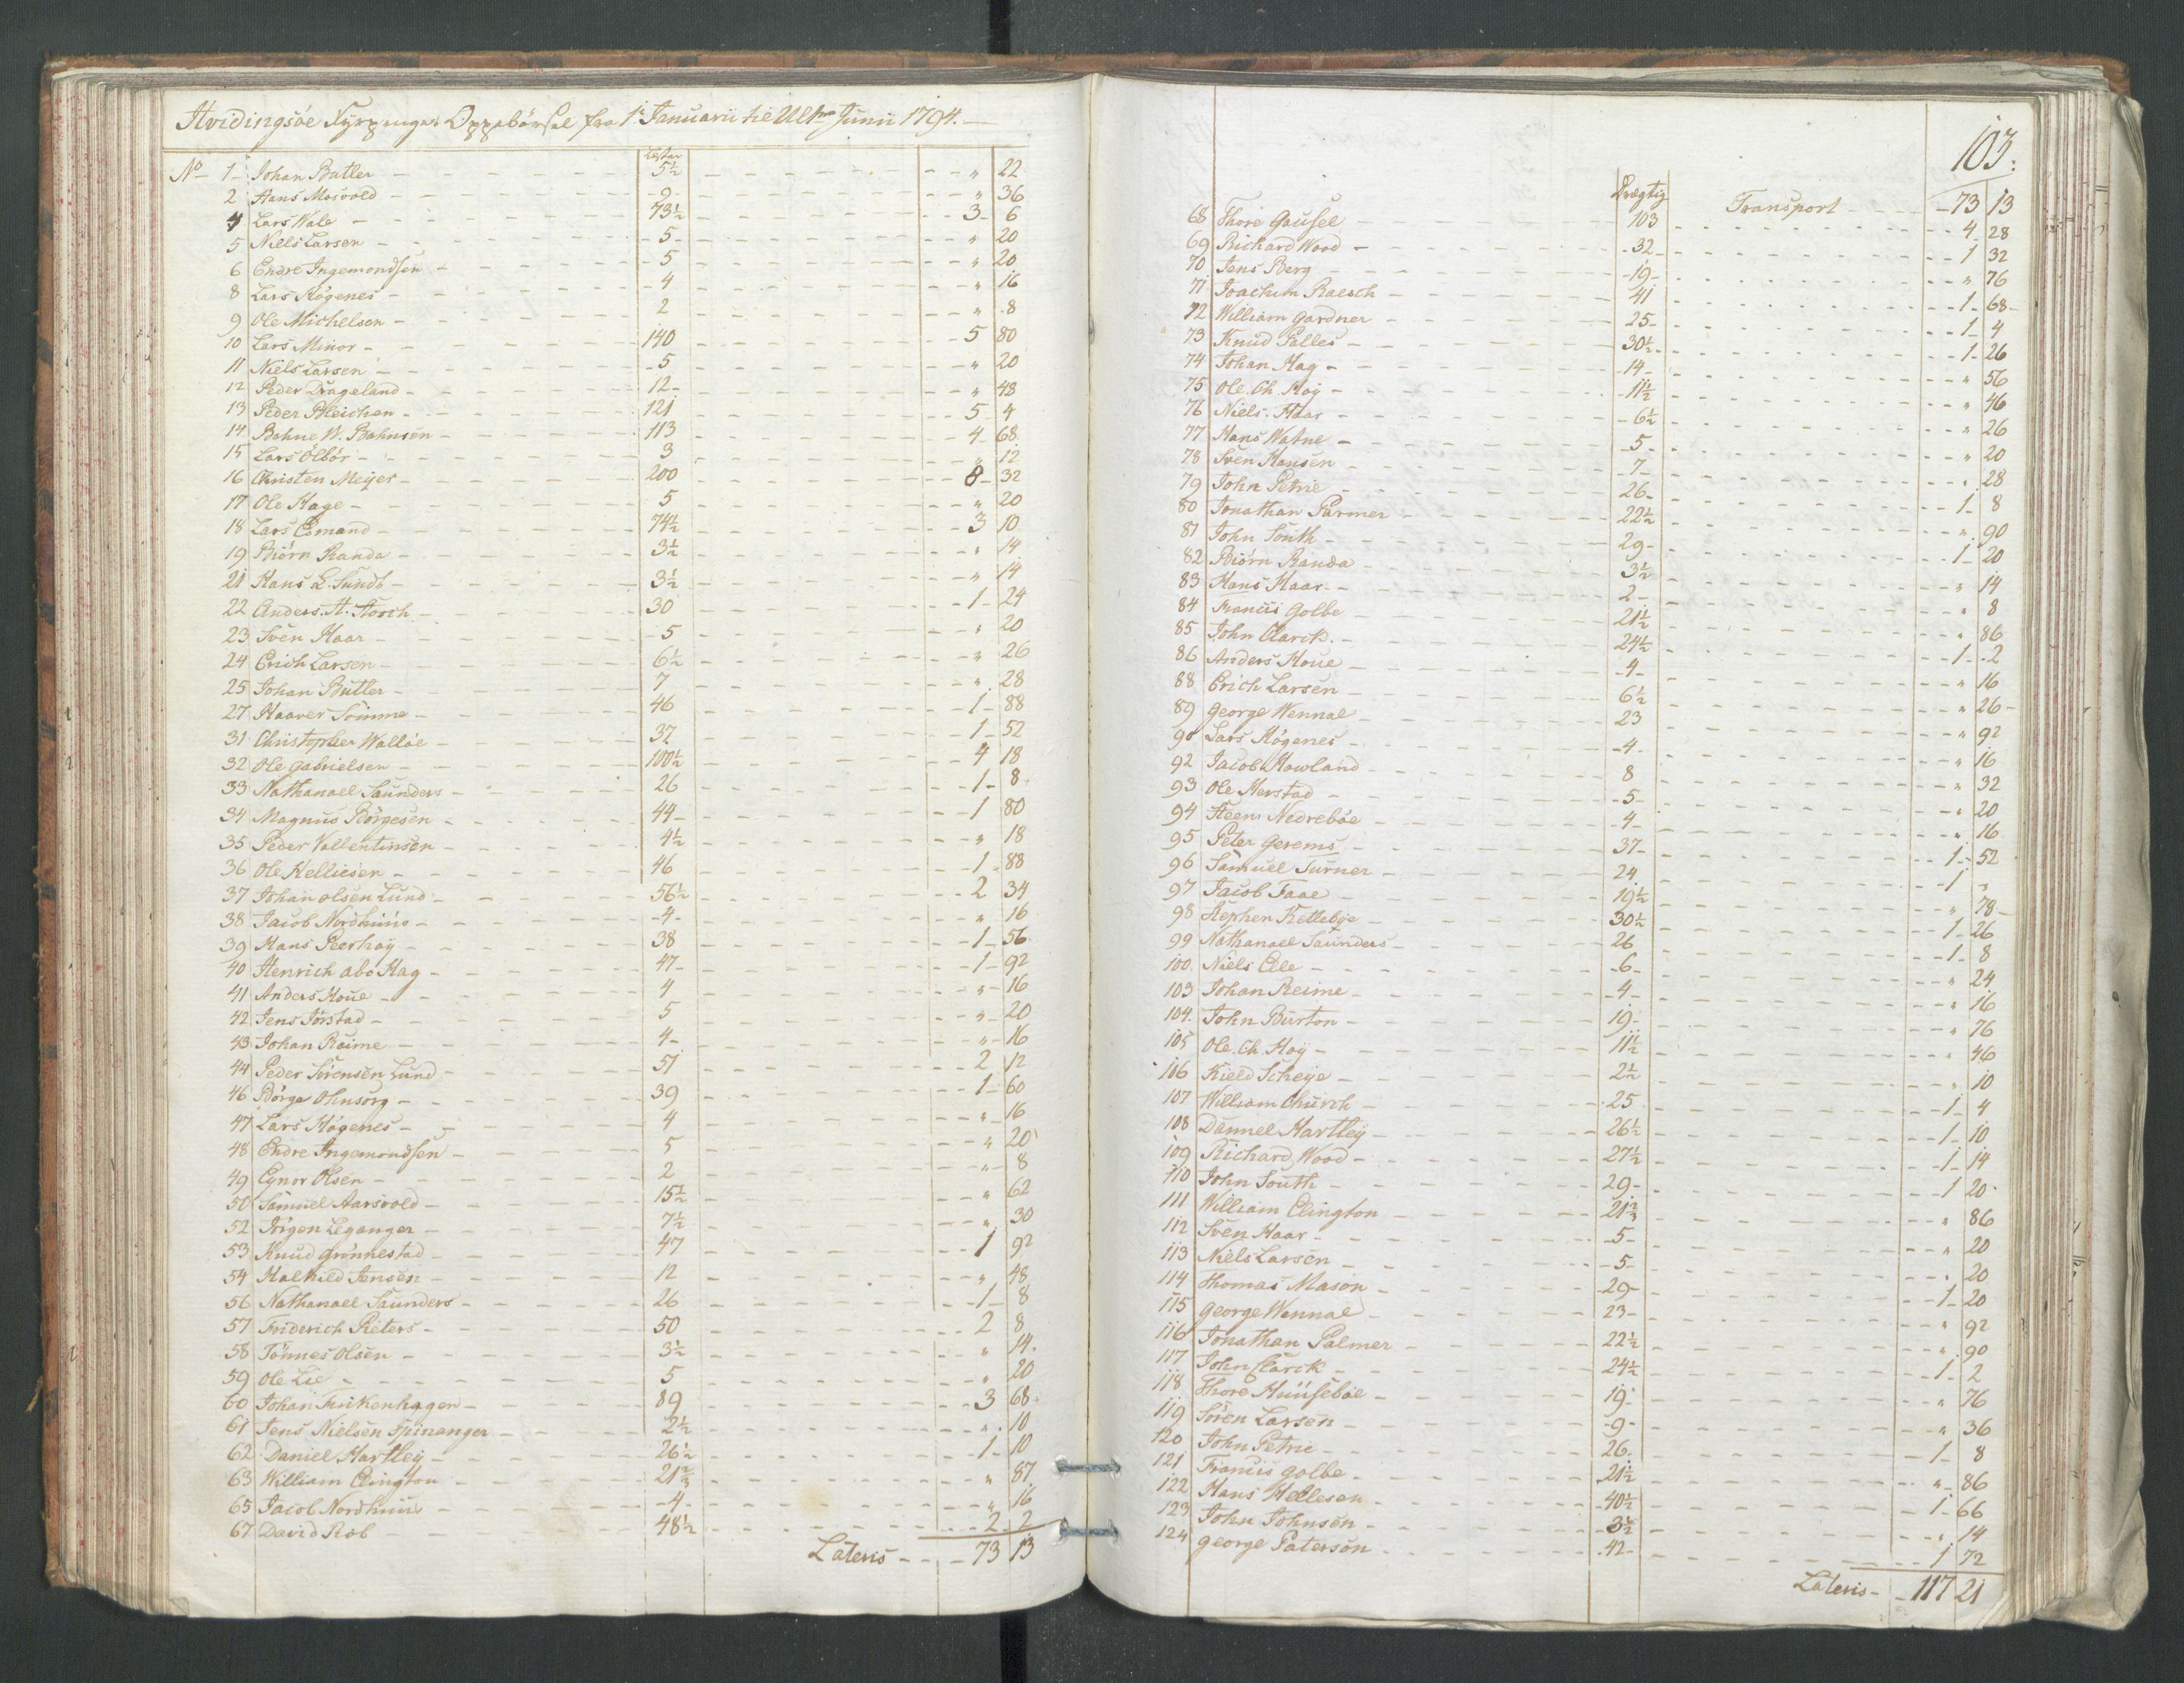 Hvidingsøe Fyrpenger Oppebørsel fra 1ᵉ Januarii til Ultᵐᵒ Junii 1794.
Læster
No 1 Johan Butler 5½ " 22
2 Hans Mosvold 9 " 36
4 Lars Wale 73½ 3 6
5 Niels Larsen 5 " 20
6 Endre Ingemondsen 5 " 20
8 Lars Høgenes 4 " 16
9 Ole Michelsen 2 " 8
10 Lars Minor 140 5 80
11 Niels Larsen 5 " 20
12 Peder Drageland 12 " 48
13 Peder Bleichen 121 5 4
14 Bohne W. Bohnsen 113 4 68
15 Lars Ølbør 3 " 12
16 Christen Meyer 200 8 32
17 Ole Hage 5 " 20
18 Lars Esmand 74½ 3 10
19 Biørn Randa 3½ " 14
21 Hans L. Sundt 3½ " 14
22 Anders. A. Storch 30 1 24
23 Sven Haar 5 " 20
24 Erich Larsen 6½ " 26
25 Johan Butler 7 " 28
27 Haaver Sømme 46 1 88
31 Christopher Walløe 37 1 52
32 Ole Gabrielsen 100½ 4 18
33 Nathanael Saunders 26 1 8
34 Magnus Børgesen 44 1 80
35 Peder Vallentinsen 4½ " 18
36 Ole Helliesen 46 1 88
37 Johan olsen Lund 56½ 2 34
38 Jacob Nordhuus 4 " 16
39 Hans Peerhoy 38 1 56
40 Henrich abo Hag 47 1 92
41 Anders Houe 4 " 16
42 Jens Jørstad 5 " 20
43 Johan Reime 4 " 16
44 Peder Sørensen Lund 51 2 12
46 Børge Ohnsorg 39 1 60
47 Lars Høgenes 4 " 16
48 Endre Ingemondsen 5 " 20
49 Eynor Olsen 2 " 8
50 Samuel Aarsvold 15½ " 62
52 Jørgen Leganger 7½ " 30
53 Knud Grønnestad 47 1 92
54 Halkild Jensen 12 " 48
56 Nathanael Saunders 26 1 8
57 Friderich Pieters 50 2 8
58 Tønnes Olsen 3½ " 14
59 Ole Lie 5 " 20
60 Johan Finkenhagen 89 3 68
61 Jens Nielsen Spinanger 2½ " 10
62 Daniel Hartley 26½ 1 10
63 William Elington 21⅔ " 87
65 Jacob Nordhuus 4 " 16
67 David Rob 48½ 2 2
Lateris 73 13
103.
Drægtig Transport 73 13
68 Thore Gausel 103 4 28
69 Richard Wood 32 1 32
70 Jens Berg 19 " 76
71 Joachim Raesch 41 1 68
72 William Gardner 25 1 4
73 Knud Palles 30½ 1 26
74 Johan Hag 14 " 56
75 Ole. Ch. Høy 11½ " 46
76 Niels Haar 6½ " 26
77 Hans Watne 5 " 20
78 Sven Hansen 7 " 28
79 John Petrie 26 1 8
80 Jonathan Parmer 22½ " 90
81 John South 29 1 20
82 Biørn Randa 3½ " 14
83 Hans Haar 2 " 8
84 Francis Golbe 21½ " 86
85 John Clarck 24½ 1 2
86 Anders Houe 4 " 16
88 Erich Larsen 6½ " 26
89 George Wennal 23 " 92
90 Lars Høgenes 4 " 16
92 Jacob Howland 8 " 32
93 Ole Herstad 5 " 20
94 Steen Nedrebøe 4 " 16
95 Peter Gerems 37 1 52
96 Samuel Turner 24 1 "
97 Jacob Faae 19½ " 78
98 Stephen Kettebye 30½ 1 26
99 Nathanael Saunders 26 1 8
100 Niels Elle 6 " 24
103 Johan Reime 4 " 16
104 John Burton 19 " 76
105 Ole. Ch. Høy 11½ " 46
106 Kield Scheye 2½ " 10
107 William Church 25 1 4
108 Danniel Hartley 26½ 1 10
109 Richard Wood 27½ 1 14
110 John South 29 1 20
111 William Elington 21⅔ " 86
112 Sven Haar 5 " 20
113 Niels Larsen 5 " 20
114 Thomas Mason 29 1 20
115 George Wennal 23 " 92
116 Jonathan Palmer 22½ " 90
117 John Clarck 24½ 1 2
118 Thore Huusebøe 19 " 76
119 Søren Larsen 9 " 36
120 John Petrie 26 1 8
121 Francis Golbe 21½ " 86
122 Hans Hellesen 40½ 1 66
123 John Johnsen 3½ " 14
124 George Paterson 42 1 72
Lateris 117 21